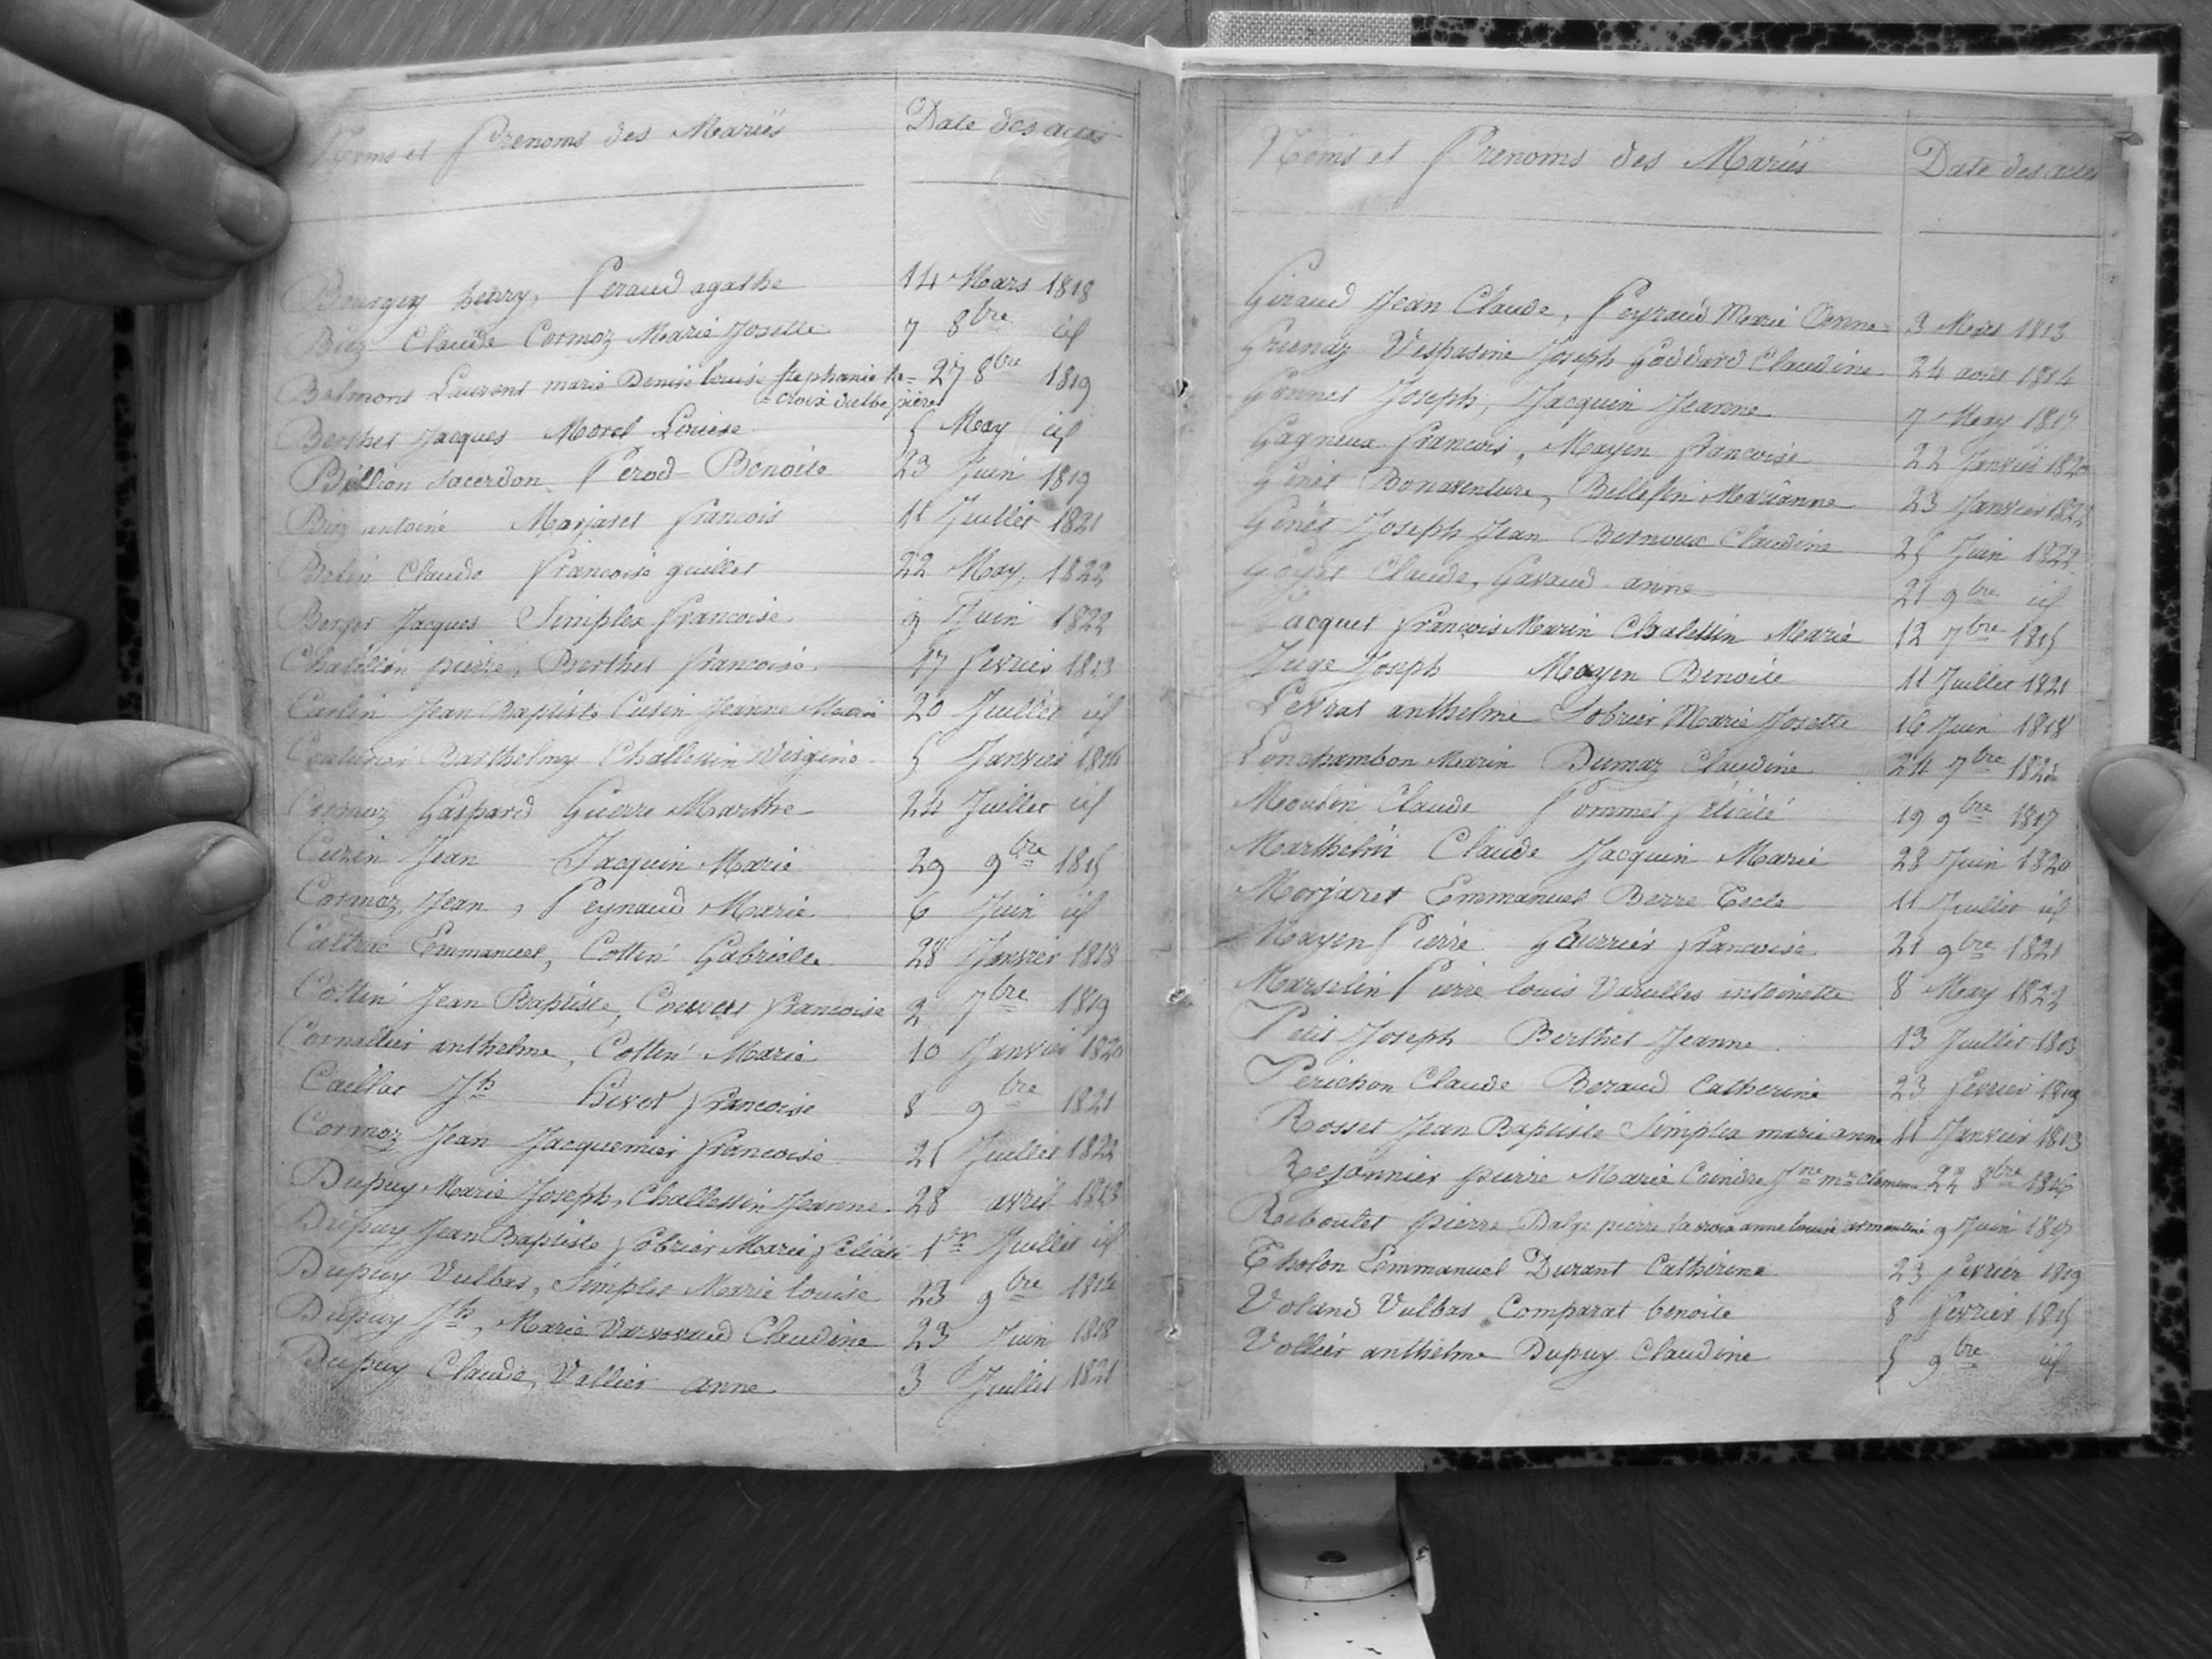 Noms et Prenoms des Mariés Date des actes
Bourgey henry, Peraud agathe 14 Mars 1818
Biez Claude Cormoz Marie Josette 7 8bre id
Belmont Laurent marie Denise louise stephanie la- 27 8bre 1819
-croix dulbe pierre
Berthet Jacques Morel Louise 5 May id
Billion Sacerdon Perod Benoite 23 Juin 1819
Biez antoine Marjaret francois 11 Juillet 1821
Belin Claude francoise guillet 22 May 1822
Berger Jacques Simplex francoise 9 Juin 1822
Chatillon pierre, Berthet francoise 17 fevrier 1813
Carlin Jean Baptiste Cusin Jeanne Marie 20 Juillet id
Couturier Barthelmy Challettin Virginie 5 Janvier 1814
Cormoz Gaspard Guerre Marthe 24 Juillet id
Cuzin Jean Jacquin Marie 29 9bre 1815
Cormoz Jean, Peynaud Marie 6 Juin id
Cattrac Emmanuel, Cottin Gabrielle 28 Janvier 1818
Cottin Jean Baptiste, Convert francoise 2 7bre 1819
Cornallier anthelme, Cottin Marie 10 Janvier 1820
Caillat Jh Bivet francoise 8 9bre 1821
Cormoz Jean Jacquemier francoise 21 Juillet 1822
Dupuy Marie Joseph, Challettin Jeanne 28 avril 1813
Dupuy Jean Baptiste Sobrier Marie felicité 1er Juillet id
Dupuy Vulbas, Simplex Marie louise 23 9bre 1814
Dupuy Jh, Marie Varvovaud Claudine 23 Juin 1818
Dupuy Claude, Vallier anne 3 Juillet 1821
Noms et Prenoms des Mariés Date des actes
Giraud Jean Claude, Peyraud Marie Anne 3 Mars 1813
Grienay Vespasine Joseph Goddard Claudine 24 aout 1814
Gonnet Joseph, Jacquin Jeanne 7 May 1817
Gagneux francois, Mayen francoise 22 Janvier 1820
Genet Bonaventure, Bellefin Marianne 23 Janvier 1822
Genet Joseph Jean Bernoux Claudine 25 Juin 1822
Goyet Claude, Gavaud anne 21 9bre id
Jacquet françois Marin Chalettin Marie 12 7bre 1815
Juge Joseph Mayen Benoite 11 Juillet 1821
Levrat anthelme Sobrier Marie Josette 16 Juin 1818
Lonchambon Marin Dumaz Claudine 24 7bre 1822
Moudin Claude Pommet félicité 19 9bre 1817
Marthelin Claude Jacquin Marie 28 Juin 1820
Morjaret Emmanuel Berre Tecle 11 Juillet id
Mayen Pierre Gourrier francoise 21 9bre 1821
Marselin Pierre louis Varulles antoinette 8 May 1822
Petit Joseph Berthet Jeanne 13 Juillet 1813
Perichon Claude Beraud Catherine 23 fevrier 1819
Rosset Jean Baptiste Simplex marie anne 11 Janvier 1813
Rejannier pierre Marie Coindre Jne me Clemence 22 8bre 1816
Reboulet pierre Dalge pierre lacroix anne louise armantine 9 Juin 1817
Tholon Emmanuel Durant Catherine 23 fevrier 1819
Voland Vulbas Comparat benoite 8 fevrier 1815
Vollier anthelme Dupuy Claudine 5 9bre id